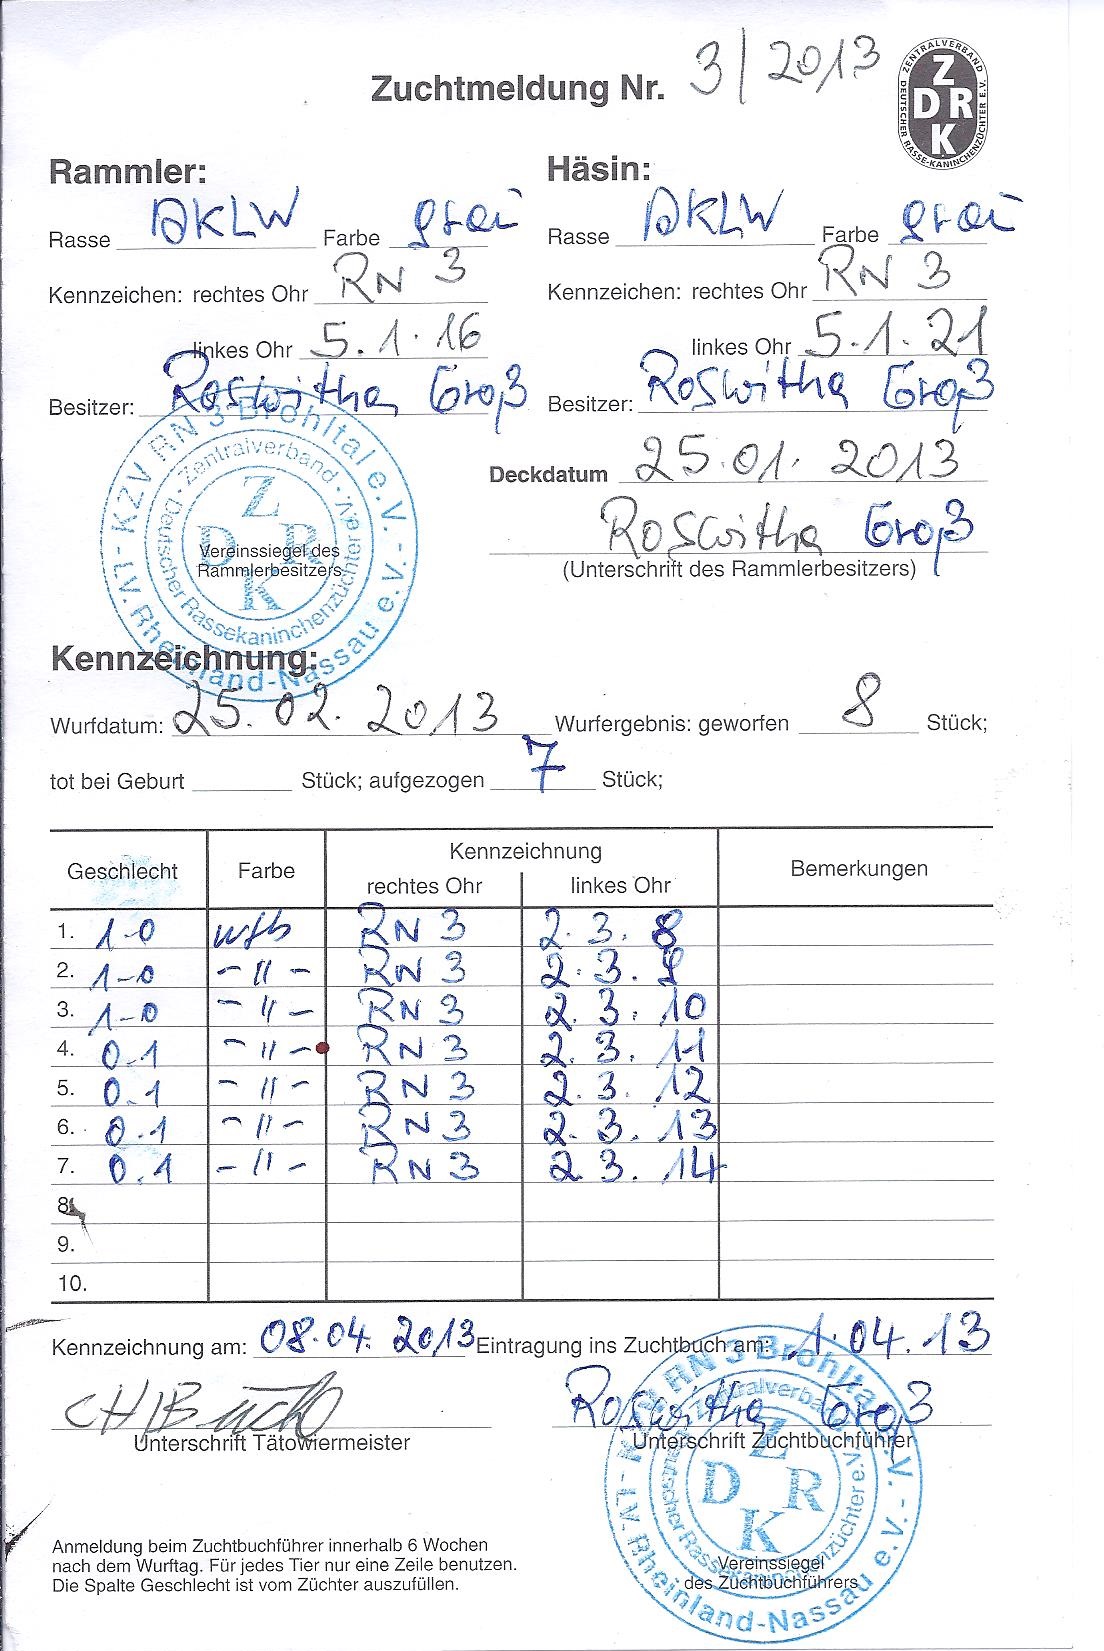 Zuchtmeldung Nr. 3/2013
ZENTRALVERBAND DEUTSCHER RASSE-KANINCHENZÜCHTER E.V. ZDRK
Rammler: Häsin:
Rasse DKLW Farbe grau Rasse DKLW Farbe grau
Kennzeichen: rechtes Ohr RN 3 Kennzeichen: rechtes Ohr RN 3
linkes Ohr 5.1.16 linkes Ohr 5.1.21
Besitzer: Roswitha Groß Besitzer: Roswitha Groß
Deckdatum 25.01.2013
Roswitha Groß
(Unterschrift des Rammlerbesitzers)
KZV RN 3 Brohltal e.V. - LV. Rheinland-Nassau e.V. -
Zentralverband Deutscher Rassekaninchenzüchter e.V.
ZDRK
Vereinssiegel des
Rammlerbesitzers
Kennzeichnung:
Wurfdatum: 25.02.2013 Wurfergebnis: geworfen 8 Stück;
tot bei Geburt Stück; aufgezogen 7 Stück;
Geschlecht Farbe Kennzeichnung Bemerkungen
rechtes Ohr linkes Ohr
1. 1-0 wfb RN 3 2.3.8
2. 1-0 -"- RN 3 2.3.9
3. 1-0 -"- RN 3 2.3.10
4. 0.1 -"- RN 3 2.3.11
5. 0.1 -"- RN 3 2.3.12
6. 0.1 -"- RN 3 2.3.13
7. 0.1 -"- RN 3 2 3.14
8.
9.
10.
Kennzeichnung am: 08.04.2013 Eintragung ins Zuchtbuch am: 1.04.13
Roswitha Groß
Unterschrift Tätowiermeister Unterschrift Zuchtbuchführer
KZV RN 3 Brohltal e.V. - LV. Rheinland-Nassau e.V. -
Zentralverband Deutscher Rassekaninchenzüchter e.V.
ZDRK
Vereinssiegel
des Zuchtbuchführers
Anmeldung beim Zuchtbuchführer innerhalb 6 Wochen
nach dem Wurftag. Für jedes Tier nur eine Zeile benutzen.
Die Spalte Geschlecht ist vom Züchter auszufüllen.